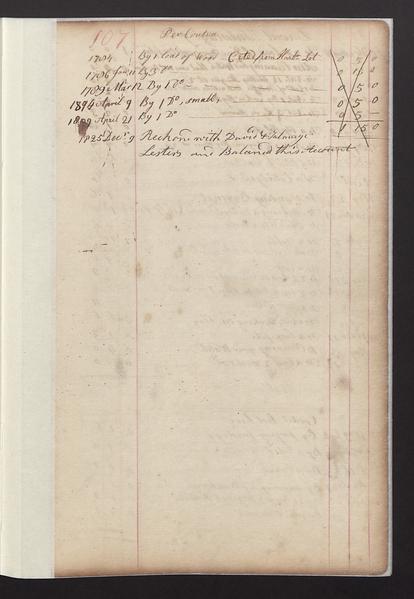 107 Per Contra
1784 By 1 Load of Wood Cotes from Hart Lot 0 5 0
1786 Jan 11 By 3 Do 0 15 0
1789 Mar 12 By 1 Do 0 5 0
1894 April 9 By 1 Do, small, 0 5 0
1809 April 21 By 1 Do 0 5
1 15 0
1825 Decr 9 Reckond with David &
Lesters and Balanced this Account